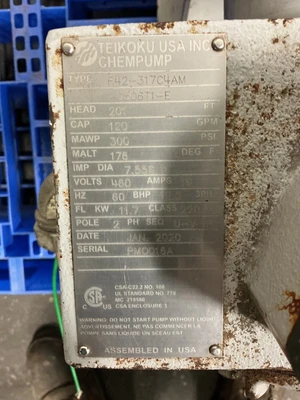 TEIKOKU USA INC
CHEMPUMP
TYPE F42-317C4AM
HEAD 201 FT
CAP 120 GPM
MAWP 300 PSI
MALT 175 DEG F
IMP DIA
VOLTS 460 AMPS
HZ 60 BHP
FL KW 11.7 CLASS
POLE 2 PH SEQ
DATE JAN 2020
SERIAL
CSA-C22.2 NO. 100
UL STANDARD NO 778
MC 219596
CSA ENCLOSURE 3
WARNING: DO NOT START PUMP WITHOUT LIQUID
AVERTISSEMENT, NE PAS COMMENCER LA
POMPE SANS LIQUIDE
ASSEMBLED IN USA